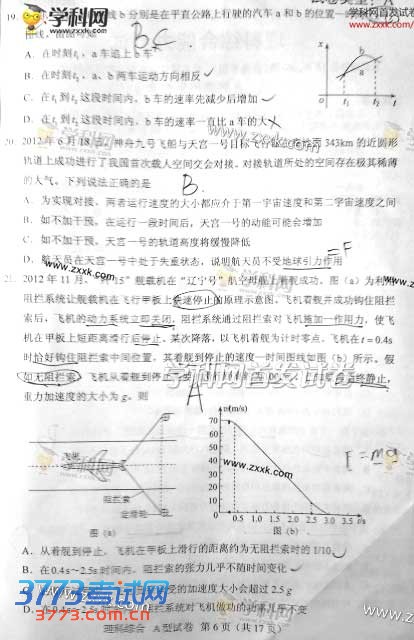 19.
线b分别是在平直公路上行驶的汽车a和b的位置一
BC
A. 在时刻t₁,a车追上b车
B. 在时刻t₂,a、b两车运动方向相反
C. 在t₁到t₂这段时间内,b车的速率先减少后增加
D. 在t₁到t₂这段时间内,b车的速率一直比a车的大
x
b
a
O
t₁
t₂
t
20. 2012年6月18日,神舟九号飞船与天宫一号目标飞行器在离地面343km的近圆形
轨道上成功进行了我国首次载人空间交会对接。对接轨道所处的空间存在极其稀薄
的大气。下列说法正确的是
B.
A. 为实现对接,两者运行速度的大小都应介于第一宇宙速度和第二宇宙速度之间
B. 如不加干预,在运行一段时间后,天宫一号的动能可能会增加
C. 如不加干预,天宫一号的轨道高度将缓慢降低
D. 航天员在天宫一号中处于失重状态,说明航天员不受地球引力作用
=F
21. 2012年11月,“歼15”舰载机在“辽宁号”航空母舰上着舰成功。图(a)为利用
阻拦系统让舰载机在飞行甲板上快速停止的原理示意图。飞机着舰并成功钩住阻拦
索后,飞机的动力系统立即关闭,阻拦系统通过阻拦索对飞机施加一作用力,使飞
机在甲板上短距离滑行后停止。某次降落,以飞机着舰为计时零点,飞机在t=0.4s
时恰好钩住阻拦索中间位置,其着舰到停止的速度一时间图线如图(b)所示。假
如无阻拦索,飞机从着舰到停止
终静止,
重力加速度的大小为g。则
A
飞机
阻拦索
定滑轮
图(a)
v(m/s)
70
60
50
40
30
20
10
0
0.5 1.0 1.5 2.0 2.5 3.0 3.5 t/s
图(b)
F=ma
A. 从着舰到停止,飞机在甲板上滑行的距离约为无阻拦索时的1/10
B. 在0.4s~2.5s时间内,阻拦索的张力几乎不随时间变化
的加速度的大小会超过2.5 g
D. 在0.4s~2.5s时间内,阻拦系统对飞机做功的功率几乎不变
理科综合 A型试卷 第6页(共17页)
学科网
www.zxxk.com
学科网首发试卷
3773考试网
www.3773.com